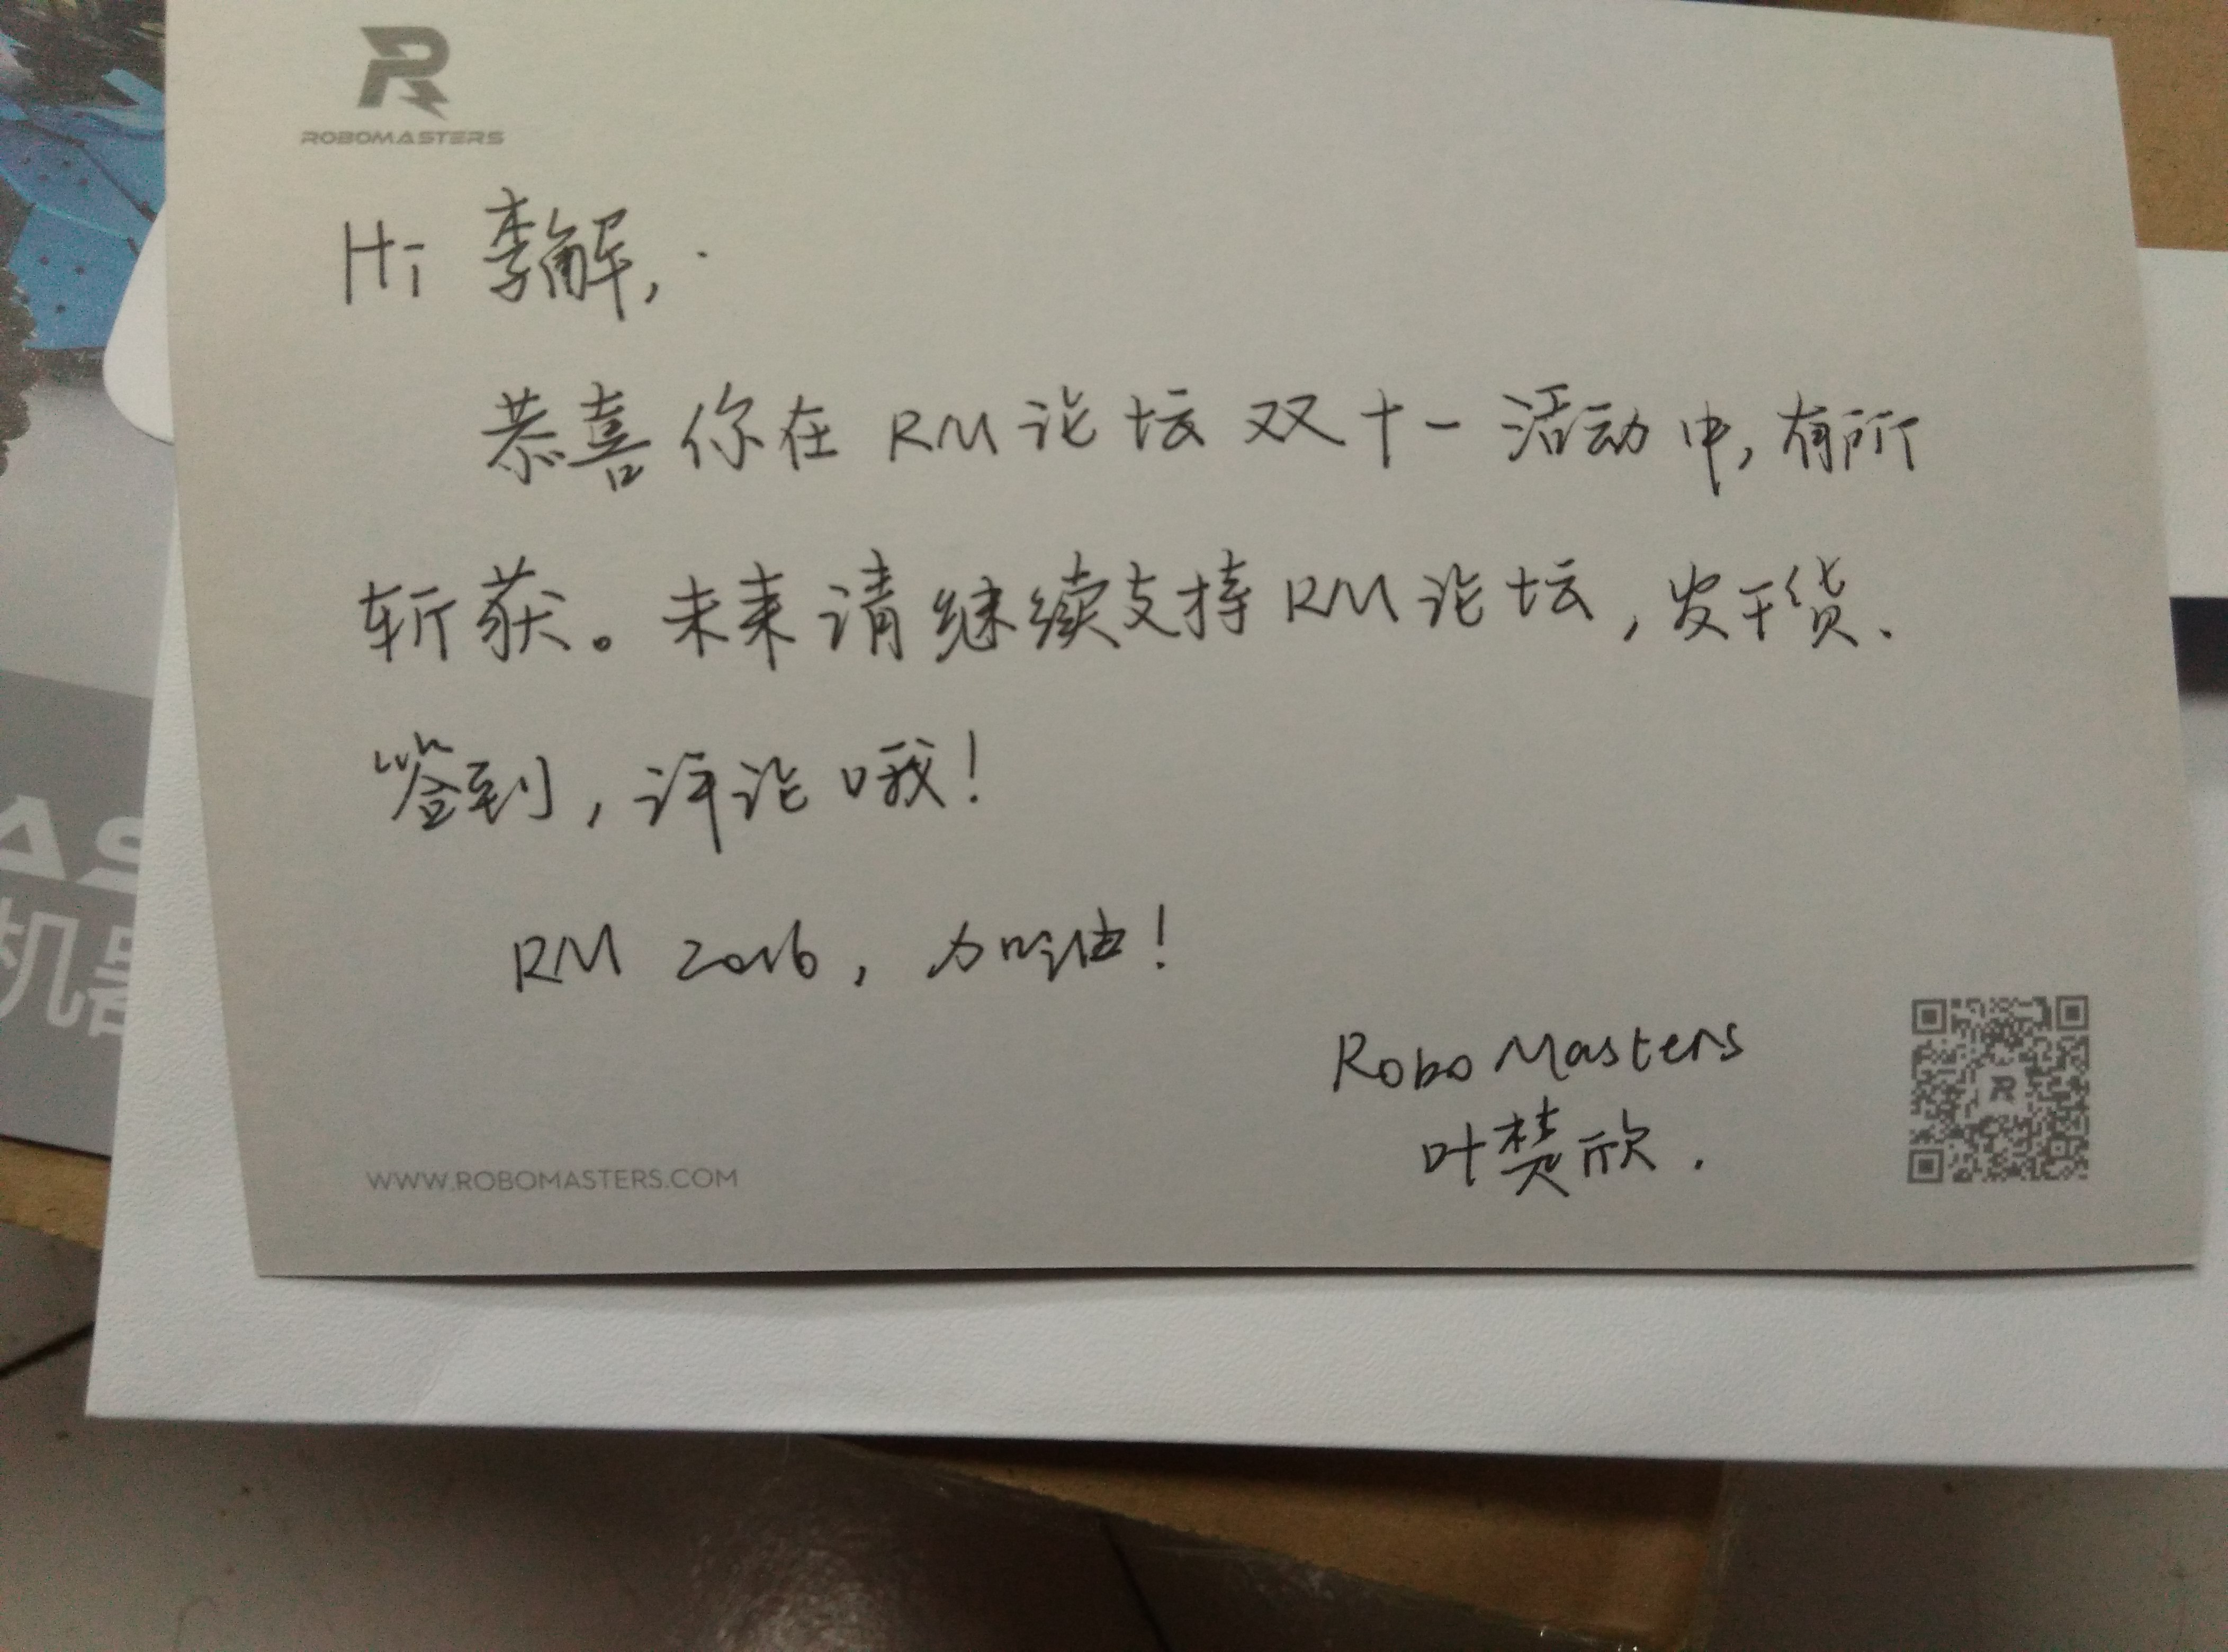 ROBOMASTERS
Hi 李解,
恭喜你在RM论坛双十一活动中,有所
斩获。未来请继续支持RM论坛,发干货、
签到,评论哦!
RM 2016,加油!
RoboMasters
叶楚欣.
WWW.ROBOMASTERS.COM
AS
机器